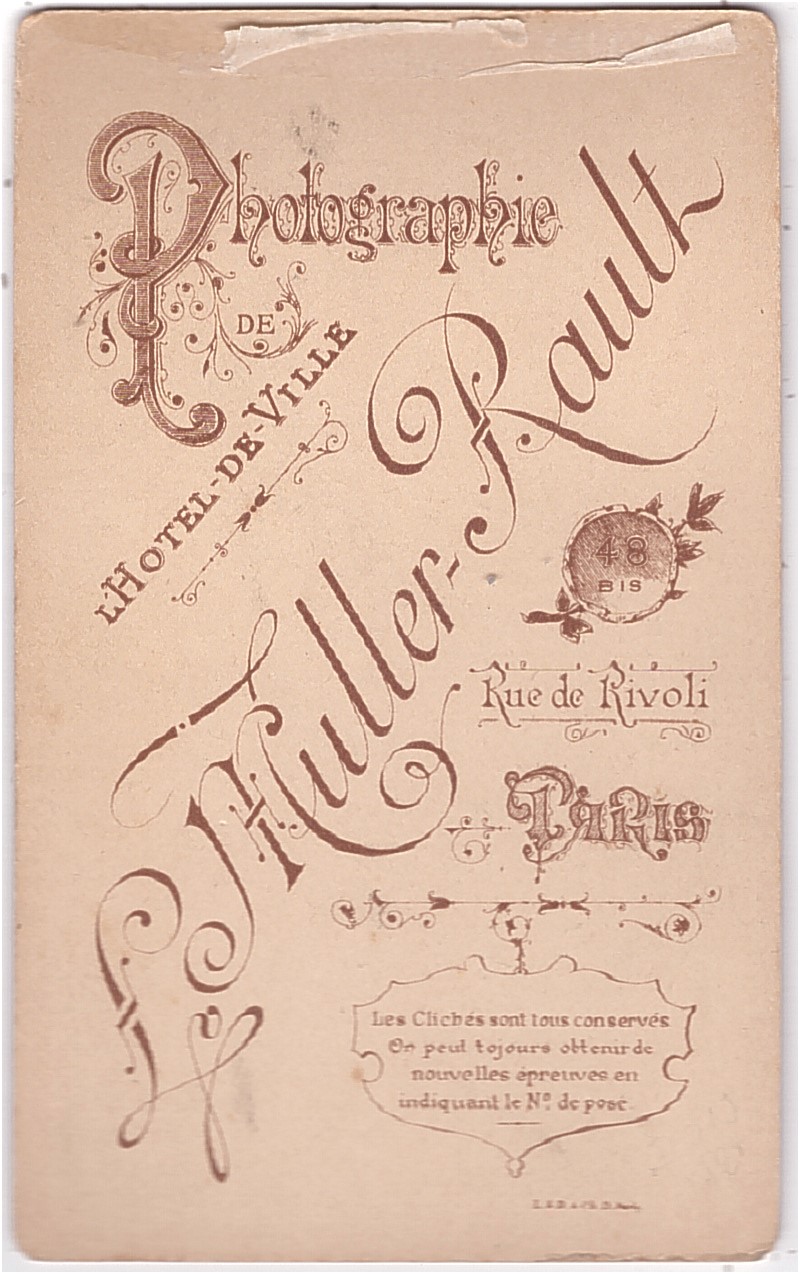 Photographie
DE
L'HOTEL-DE-VILLE
Muller-Rault
48
BIS
Rue de Rivoli
PARIS
Les Clichés sont tous conservés
On peut tojours obtenir de
nouvelles épreuves en
indiquant le Nº. de pose